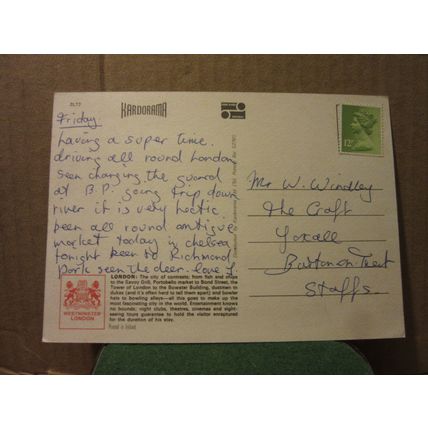 2L72
KARDORAMA
Friday
having a super time.
driving all round London
seen changing the guard
at B.P. going trip down
river it is very hectic.
been all round antique
market today in chelsea
tonight been to Richmond
park seen the deer. love J.
12P
Mr W. Windley
The Croft
Yoxall
Burton on Trent
Staffs
LONDON: The city of contrasts: from fish and chips
to the Savoy Grill, Portobello market to Bond Street, the
Tower of London to the Bowater Building, dustmen to
dukes (and it's often hard to tell them apart) and bowler
hats to bowling alleys—all this goes to make up the
most fascinating city in the world. Entertainment knows
no bounds; night clubs, theatres, cinemas and sight-
seeing tours guarantee to hold the visitor enraptured
for the duration of his stay.
WESTMINSTER
LONDON
Printed in Ireland